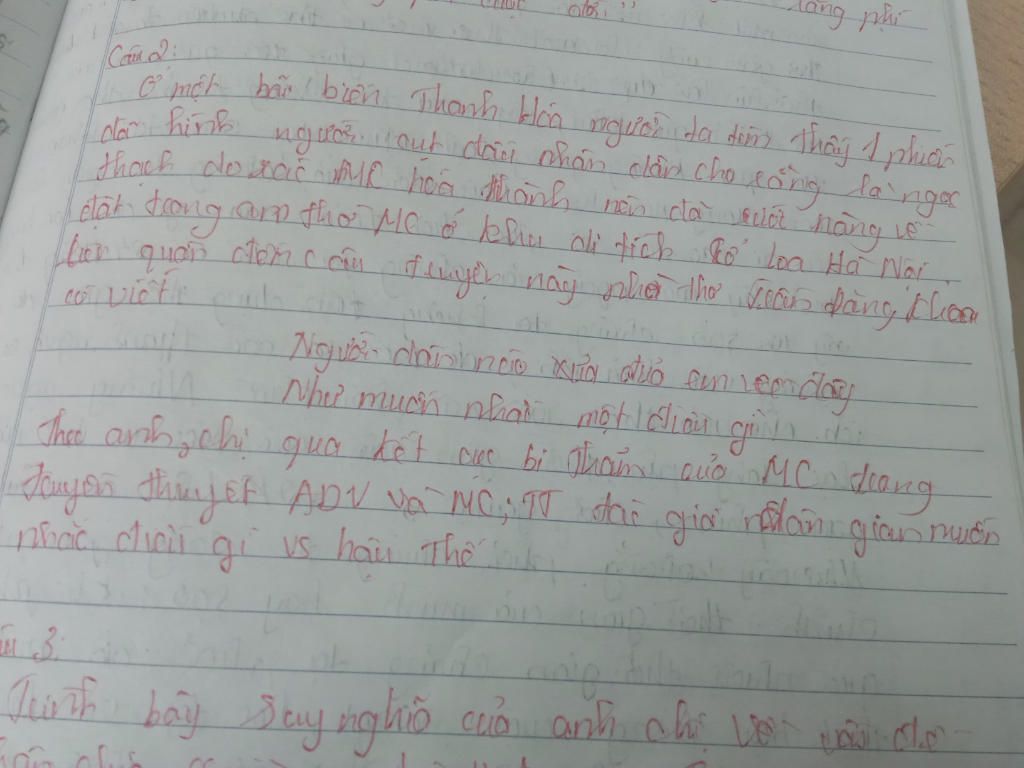 lãng phí
Câu 2:
Ở một bãi biển Thanh Hóa người ta tìm thấy 1 phiến
đá hình người cụt đầu nhân dân cho rằng là ngọc
thạch do xác MC hóa thành nên đã rước nàng về
đặt trong am thờ MC ở khu di tích Cổ Loa Hà Nội
liên quan đến câu chuyện này nhà thơ Trần Đăng Khoa
có viết
Người dân nào xưa đưa em về đây
Như muốn nhắc một điều gì
Theo anh, chị qua kết cục bi thảm của MC trong
truyền thuyết ADV và MC, TT tác giả dân gian muốn
nhắc điều gì vs hậu thế
3.
Trình bày suy nghĩ của anh chị về vấn đề